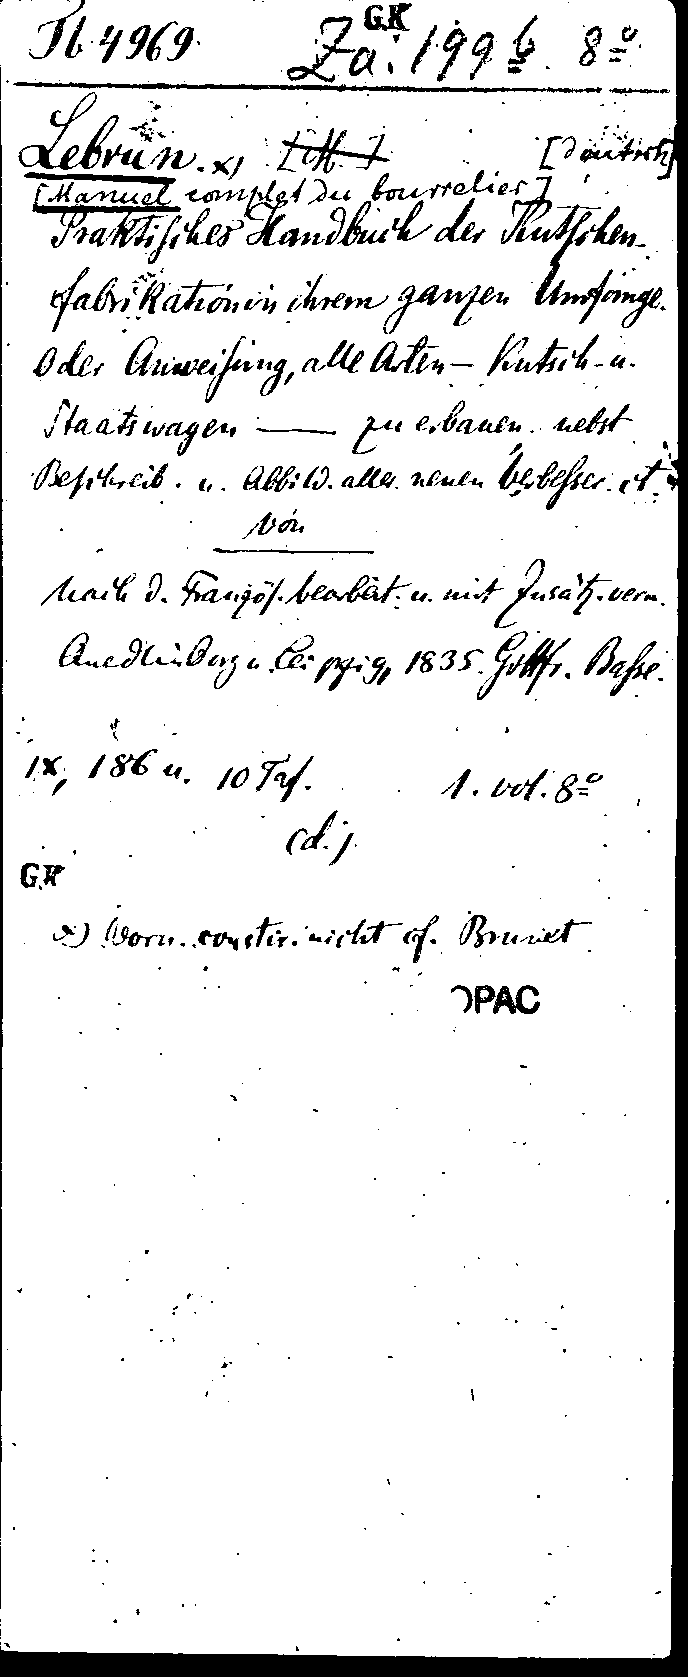 Tb 4969. GK Za. 199 b. 8º
Lebrun. x) [M.] [deutsch]
[Manuel complet du bourrelier]
Praktisches Handbuch der Kutschen-
fabrikation in ihrem ganzen Umfange.
Oder Anweisung, alle Arten – Kutsch- u.
Staatswagen — zu erbauen. nebst
Beschreib. u. Abbild. aller neuen Verbesser. et
von
Nach d. Französ. bearbeit. u. mit Zusätz. verm.
Quedlinburg u. Leipzig, 1835. Gottfr. Basse.
IX, 186 u. 10 Taf. 1. vol. 8º
(d.)
GK
x) Vorn. constir. nicht cf. Brunet
OPAC